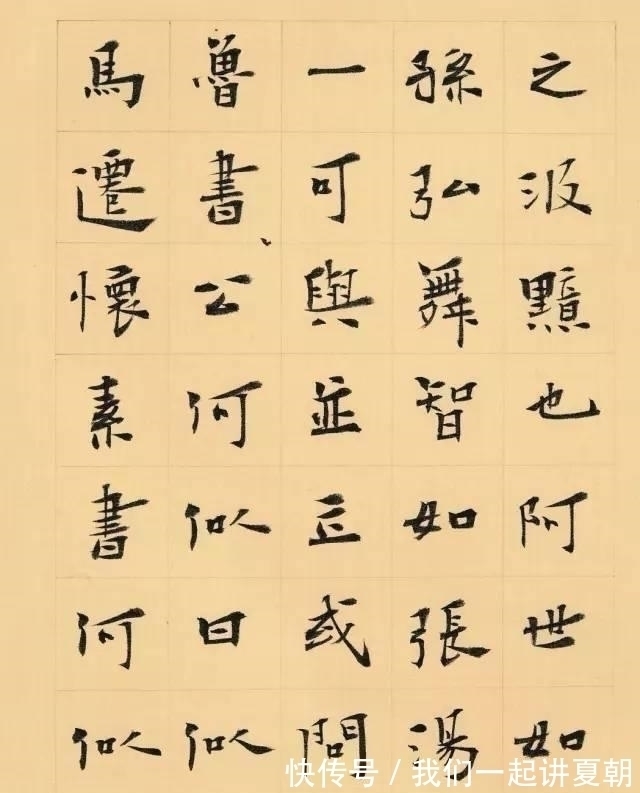 之汲黯也阿世如
孫弘舞智如張湯
一可與並立或問
魯書公何似曰似
馬遷懷素書何似
快传号 / 我们一起讲夏朝